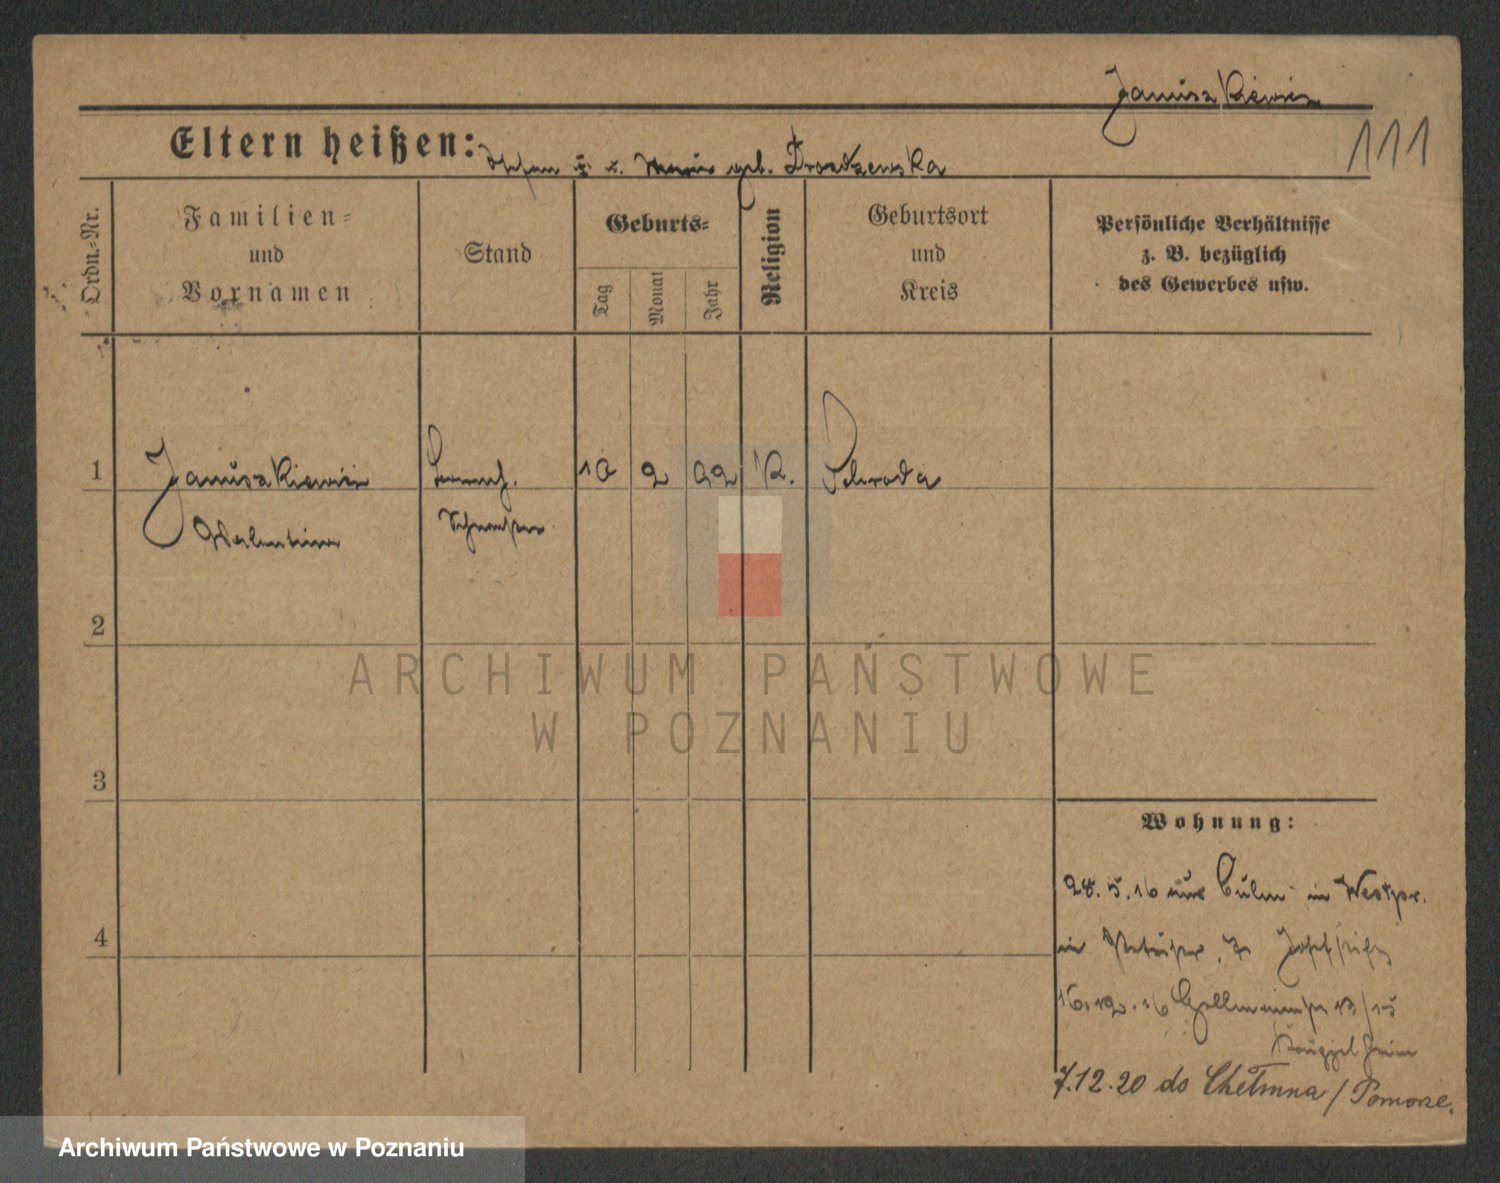 Januszkiewicz
111
Eltern heißen: Stefan u. Marie geb. Drozdzewska
Ordn.-Nr.
Familien-
und
Vornamen
Stand
Geburts-
Tag
Monat
Jahr
Religion
Geburtsort
und
Kreis
Persönliche Verhältnisse
z. B. bezüglich
des Gewerbes usw.
1
Januszkiewicz
10 2 92 K. Schroda
Valentine
Schwester
2
ARCHIWUM PAŃSTWOWE
W POZNANIU
3
Wohnung:
28.5.16 aus Culm in Westpr.
in
4
16.12.16 13/15
7.12.20 do Chełmna / Pomorze.
Archiwum Państwowe w Poznaniu